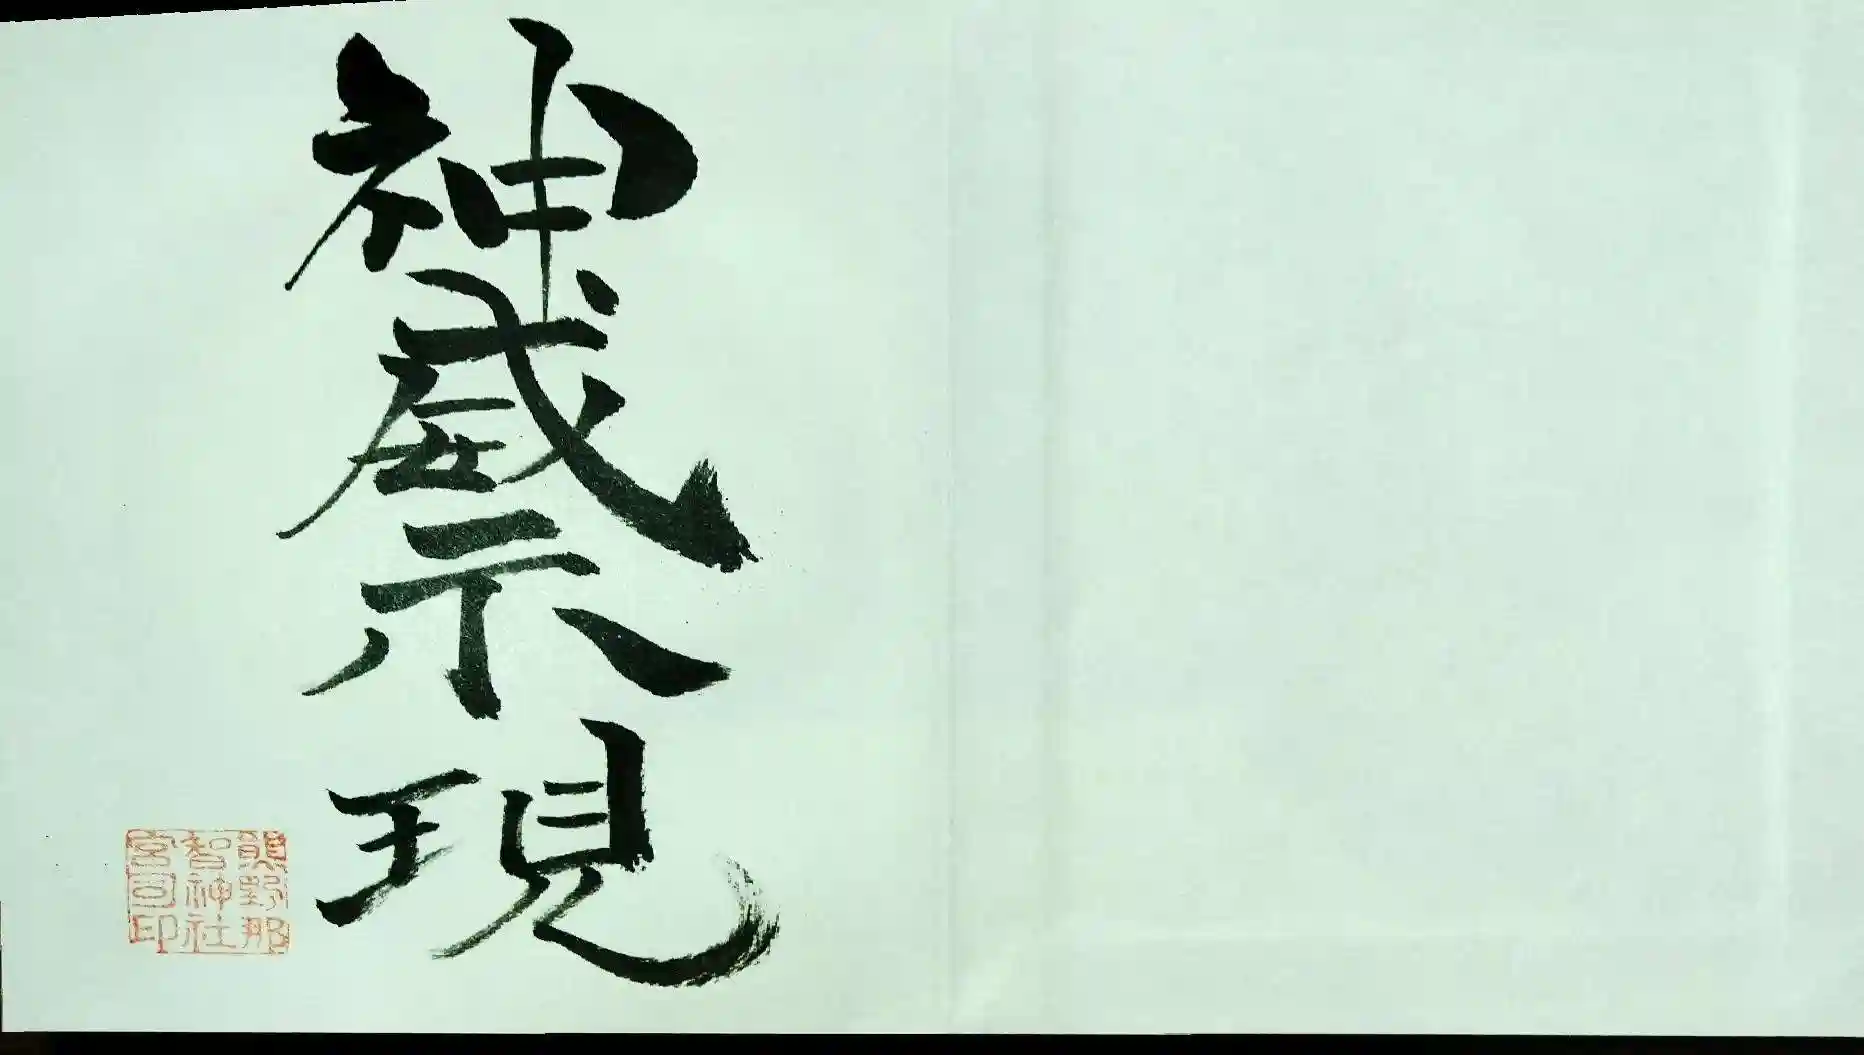 神威示現
熊野那
智神社
宮司印